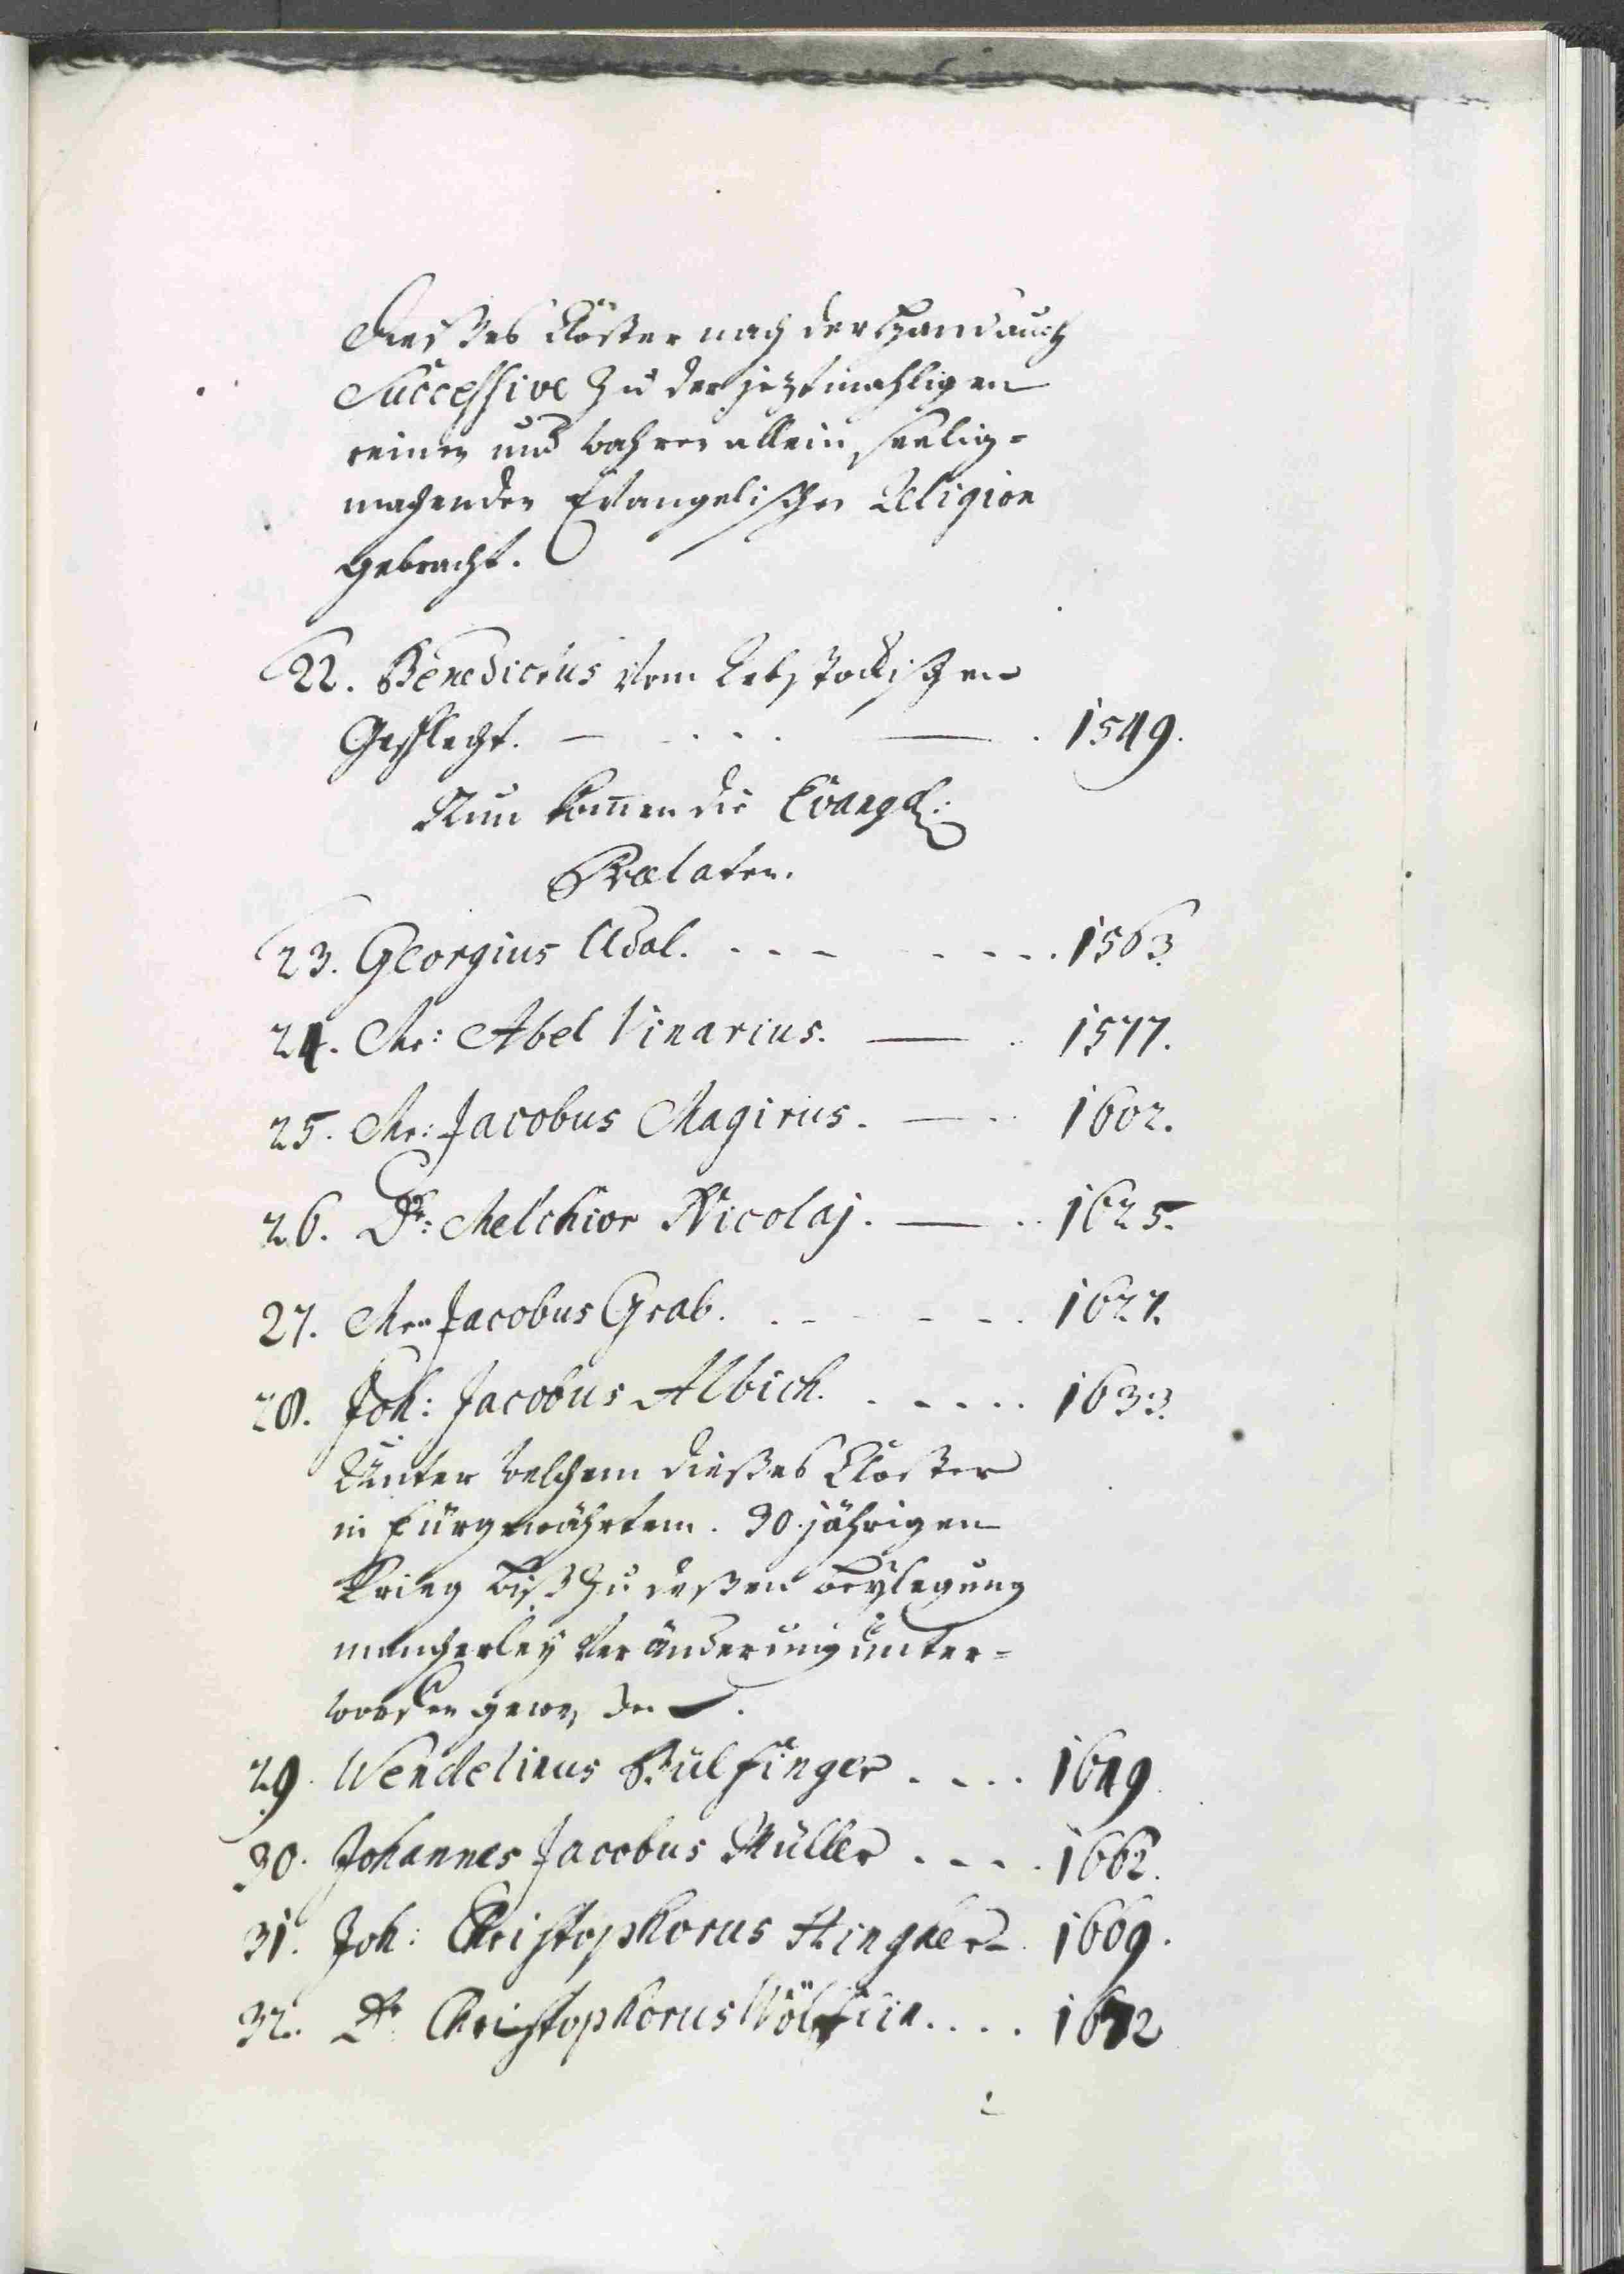 dießes Closter nach der Hand auch
Successive zu der jeztmahligen
reinen und wahren allein seelig=
machenden Evangelischen Religion
gebracht.
22. Benedictus vom Rebstockischen
Geschlecht. — - . . . — . 1549.
Nun komen die Evangel:
Prælaten.
23. Georgius Udal. . - - - - - - . 1563.
24. Mr: Abel Vinarius. — . 1577.
25. Mr: Jacobus Magirus. — . . 1602.
26. Dr: Melchior Nicolaj. — . . 1625.
27. Mr: Jacobus Grab. . - - - - . 1627.
28. Joh: Jacobus Albich. . - - . . 1633.
Unter welchem dießes Closter
in fürgewährtem 30. jährigen
Krieg biß zu deßen beylegung
mancherley Veränderung unter=
worfen geworden.
29. Wendelinus Bulfinger . - - . 1649
30. Johannes Jacobus Müller . - - . 1662.
31. Joh: Christophorus Hingher - 1669.
32. Dr Christophorus Wölflin . . . . 1672